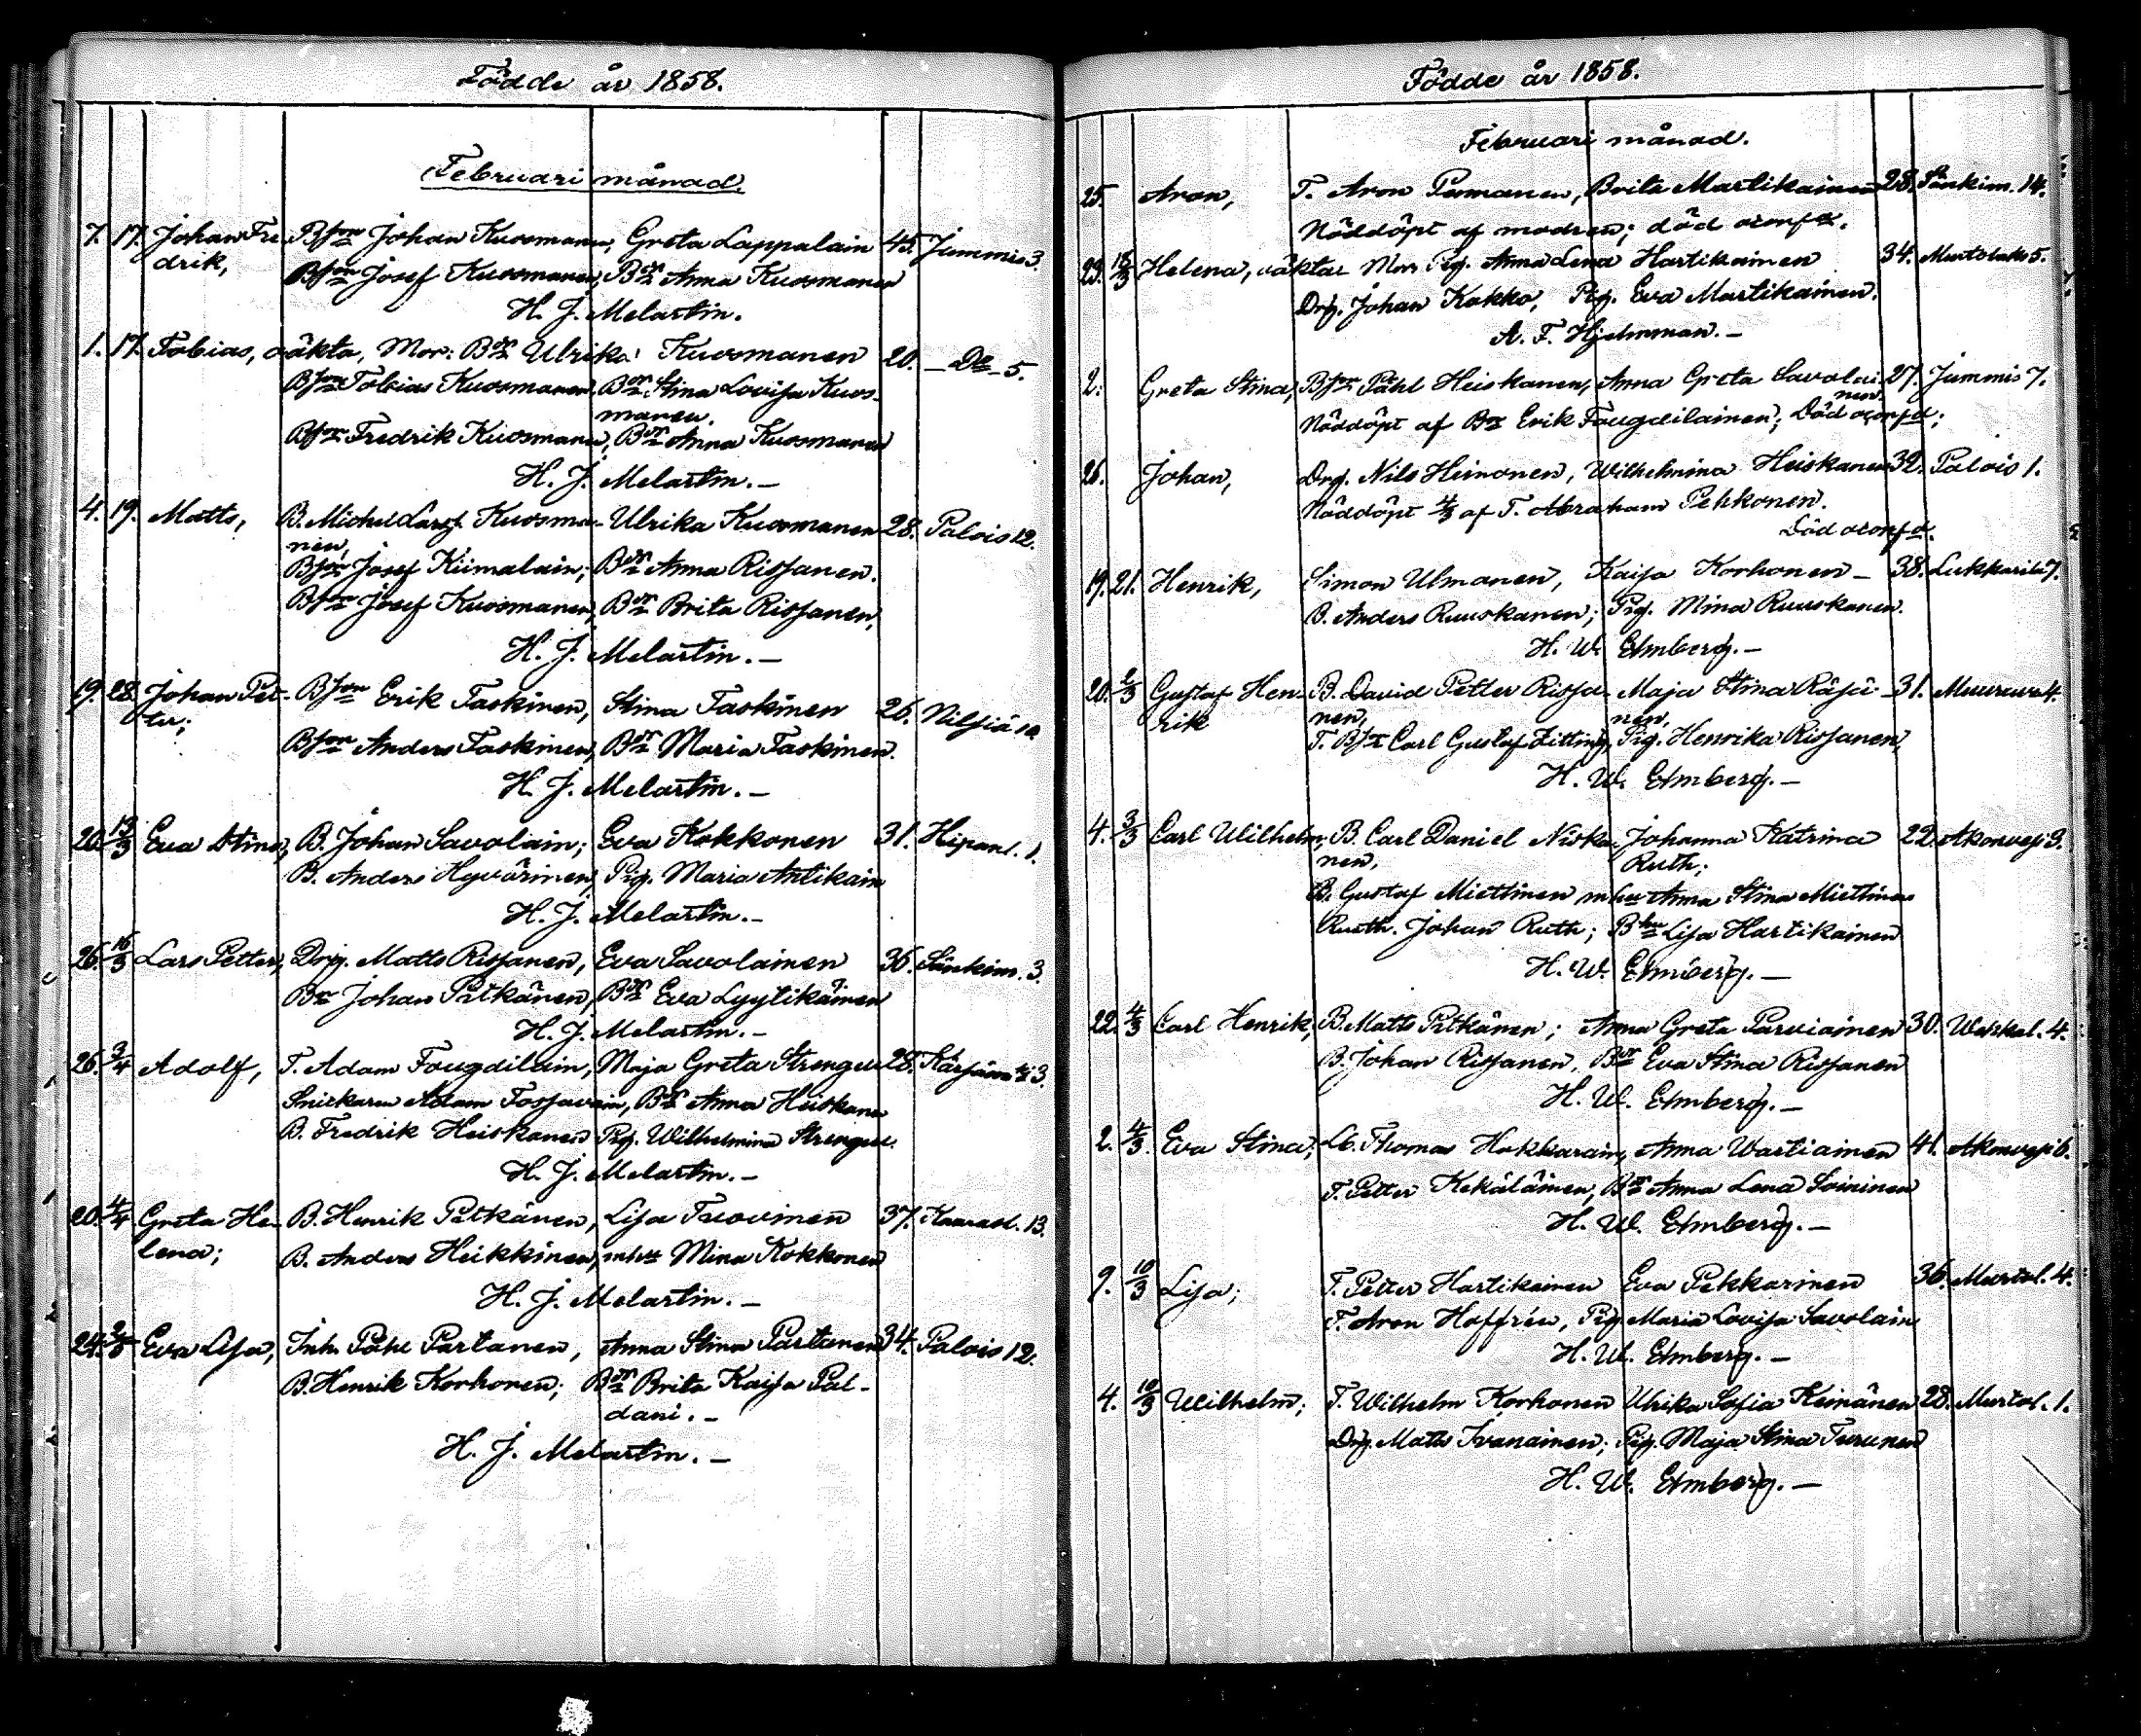 Födde år 1858.
Februari månad.
7. 17. Johan Fre- Bson Johan Kuosmanen, Greta Lappalain 45. Jummis 3.
drik, Bson Josef Kuosmanen, Bdr Anna Kuosmanen
H. J. Melartin.
1. 17. Tobias, oäkta, Mor: Bdr Ulrika Kuosmanen 20. — Do — 5.
Bson Tobias Kuosmanen, Bdr Stina Lovisa Kuos-
manen.
Bson Fredrik Kuosmanen, Bdr Anna Kuosmanen
H. J. Melartin. —
4. 19. Matts, B. Michel Larsf. Kuosma- Ulrika Kuosmanen 28. Palois 12.
nen,
Bson Josef Kiimalain; Bdr Anna Rissanen.
Bson Josef Kuosmanen, Bdr Brita Rissanen,
H. J. Melartin. —
19. 28. Johan Pet- Bson Erik Taskinen, Stina Taskinen 26. Nilsiä 10
ter; Bson Anders Taskinen, Bdr Maria Taskinen.
H. J. Melartin. —
20. 13/3 Eva Stina, B. Johan Savolain; Eva Kokkonen 31. Hipanl. 1.
B. Anders Hyvärinen, Pig. Maria Antikain
H. J. Melartin. —
26. 16/3 Lars Petter, Dräg. Matts Rissanen, Eva Savolainen 36. Sänkim. 3.
Br Johan Pitkänen, Bdr Eva Lyytikäinen
H. J. Melartin. —
26. 3/4 Adolf, T. Adam Fougdilain, Maja Greta Strengell 28. 3.
Snickaren Adam Tossavain, Bdr Anna Heiskanen
B. Fredrik Heiskanen Pig. Wilhelmina Strengell.
H. J. Melartin. —
20. 4/4 Greta He- B. Henrik Pitkänen, Lisa Tuovinen 37. Kaarasl. 13.
lena; B. Anders Heikkinen, mhu Mina Kokkonen
H. J. Melartin. —
24. Eva Lisa, Inh. Påhl Partanen, Anna Stina Partanen 34. Palois 12.
B. Henrik Korhonen; Bdr Brita Kaisa Pal-
dani. —
H. J. Melartin. —
Födde år 1858.
Februari månad.
25. Aron, T. Aron Parmanen, Brita Martikainen 28. Sänkim. 14.
Nöddöpt af modren; död oconf.
23. Helena, oäkta Mor Pig. Anna Lena Hartikainen 34. Murtolaks 5.
Drg. Johan Kokko, Pig. Eva Martikainen.
A. F. Hjelmman. —
2. Greta Stina, Bson Påhl Heiskanen, Anna Greta Savolai- 27. Jummis 7.
nen.
Nöddöpt af Br Erik Fougdilainen; Död oconf.;
26. Johan, Drg. Nils Heinonen, Wilhelmina Heiskanen 32. Palois 1.
Nöddöpt 4/3 af T. Abraham Pehkonen.
Död oconf.
19. 21. Henrik, Simon Ulmanen, Kaisa Korhonen — 38. Lukkarila 7.
B. Anders Ruuskanen; Pig. Mina Ruuskanen.
H. W. Elmberg. —
20. 2/3 Gustaf Hen- B. David Petter Rissa- Maja Stina Räsä- 31. Muuruve 4.
rik nen, nen,
T. Carl Gustaf Zitting, Pig. Henrika Rissanen,
H. W. Elmberg. —
4. 3/3 Carl Wilhelm, B. Carl Daniel Niska- Johanna Katrina 22. Akonvesi 9.
nen, Ruth;
B. Gustaf Miettinen mhu Anna Stina Miettinen
Rusth. Johan Ruth; Bhu Lisa Hartikainen
H. W. Elmberg. —
22. 4/3 Carl Henrik, B. Matts Pitkänen; Anna Greta Parviainen 30. 4.
B. Johan Rissanen, Bdr Eva Stina Rissanen
H. W. Elmberg. —
2. 4/3. Eva Stina, Thomas Hokkarain, Anna Wartiainen 41. Akonvesi 6.
T. Petter Kekäläinen, Bdr Anna Lena Soininen
H. W. Elmberg. —
9. 10/3 Lisa; T. Petter Hartikainen Eva Pekkarinen 36. Murtol. 4.
T. Aron Hoffrén, Pig Maria Lovisa Savolain
H. W. Elmberg. —
4. 10/3 Wilhelm; T. Wilhelm Korhonen Ulrika Sofia Keinänen 28. Murtol. 1.
Drg. Matts Ivanainen; Pig. Maja Stina Turunen
H. W. Elmberg. —